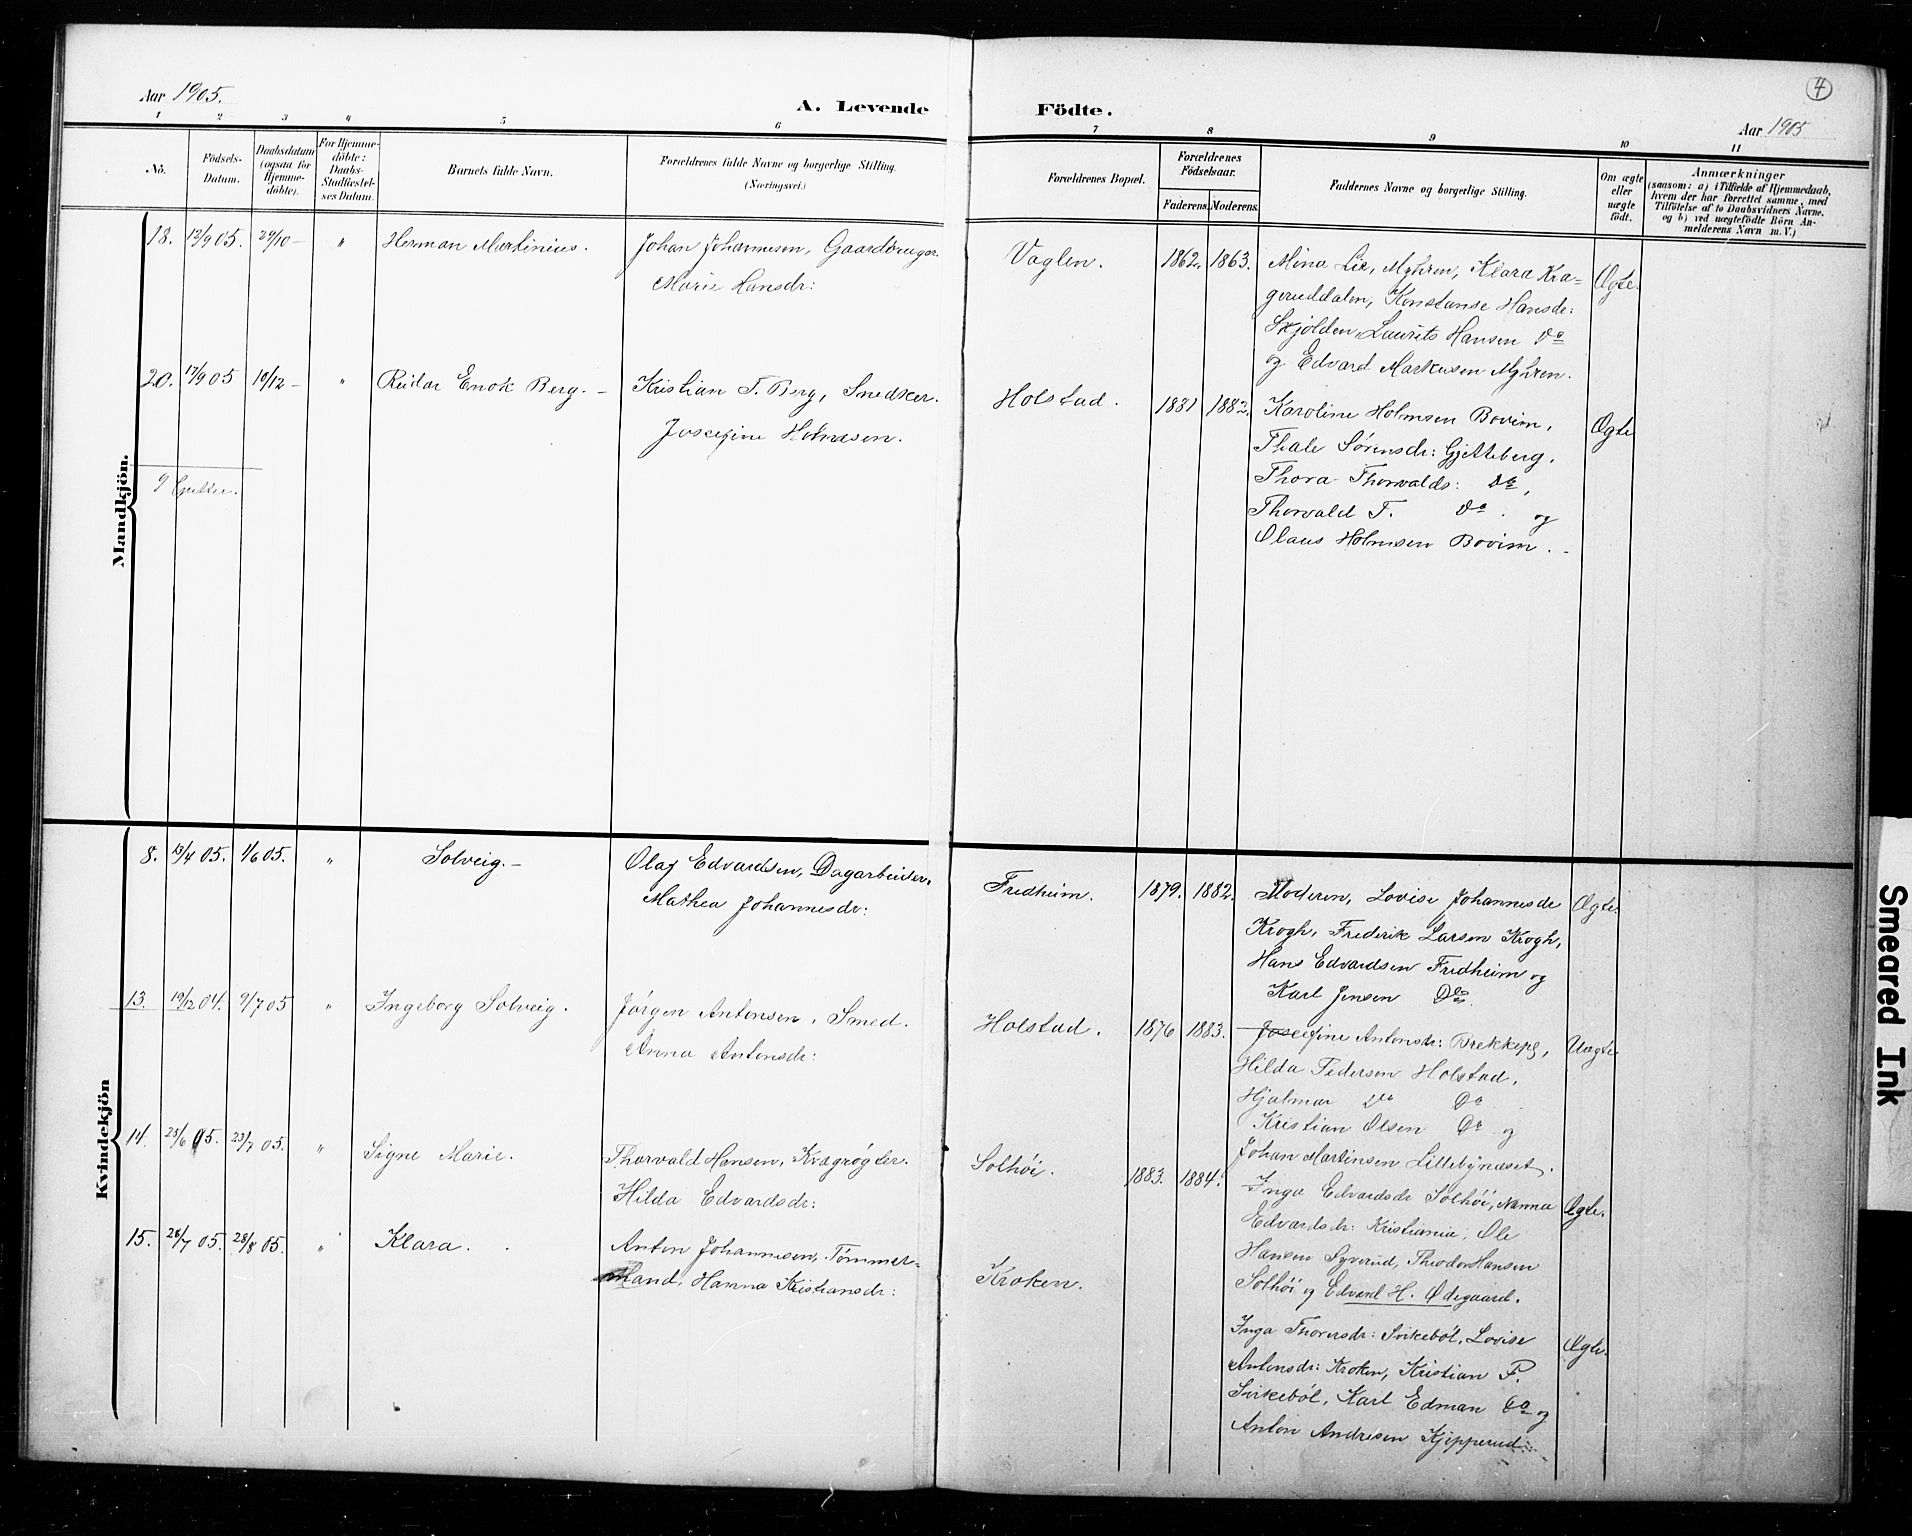 Aar 1905.
A. Levende
Födte.
4
Aar 1905
1 2 3 4 5 6
7 8 9 10 11
No.
Födsels-
Datum.
Daabsdatum
(ogsaa for
Hjemme-
döbte).
For Hjemme-
döbte:
Daabs-
Stadfæstel-
ses Datum.
Barnets fulde Navn.
Forældrenes fulde Navne og borgerlige Stilling.
(Næringsvei.)
Forældrenes Bopæl.
Forældrenes
Födselsaar.
Faderens. Moderens.
Faddernes Navne og borgerlige Stilling.
Om ægte
eller
uægte
födt.
Anmærkninger
(saasom: a) i Tilfælde af Hjemmedaab,
hvem der har forrettet samme, med
Tilföielse af to Daabsvidners Navne.
og b) ved uægtefödte Börn An-
melderens Navn m. V.)
Mandkjön.
18. 12/9 05. 29/10 – " Herman Martinius. Johan Johannesen, Gaardbruger.
Marie Hansdr:
Vaglen. 1862. 1863. Mina Lie, Myhren, Klara Kra=
geruddalen, Konstanse Hansdr:
Skjolden, Laurits Hansen Do
og Edvard Markusen Myhren.
Ægte.
20. 17/9 05 10/12 – " Reidar Enok Berg. – Kristian T. Berg, Snedker.
Josefine Holmsen.
Holstad. 1881 1882. Karoline Holmsen Bovim,
Thale Sørensdr: Gjetteberg,
Thora Thorvalds: Do,
Thorvald T. Do. og
Olaus Holmsen Bovim. –
Ægte
9 Gutter.
Kvindekjön
8. 13/4 05. 1/6 05. " Solveig. – Olaf Edvardsen, Dagarbeider.
Mathea Johannesdr:
Fredheim. 1879. 1882. Moderen, Lovise Johannesdr
Krogh, Frederik Larsen Krogh,
Hans Edvardsen Fredheim og
Karl Jensen Do.
Ægte.
13. 19/12 04. 9/7 05 " Ingeborg Solveig. Jørgen Antonsen, Smed.
Anna Antonsdr:
Holstad. 1876 1883. Josefine Antonsdr: Brekkeplg,
Hilda Pedersen Holstad,
Hjalmar Do Do
Kristian Olsen Do og
Johan Martinsen Lillebynæset.
Uægte
14. 25/6 05. 23/7 05. " Signe Marie. Thorvald Hansen, Kvægrøgter.
Hilda Edvardsdr:
Solhöi. 1883. 1884. Inga Edvardsdr Solhöi, Nanna
Edvardsdr: Kristiania, Ole
Hansen Syverud, Theodor Hansen
Solhöi og Edvard H. Ødegaard.
Ægte.
15. 26/7 05. 28/8 05. " Klara. Anton Johannesen, Tømmer=
mand, Hanna Kristiansdr:
Kroken.
Inga Thoresdr: Svikebøl, Lovise
Antonsdr: Kroken, Kristian P.
Svikebøl, Karl Edman Do og
Anton Andresen Kjepperud.
Ægte.
Smeared Ink